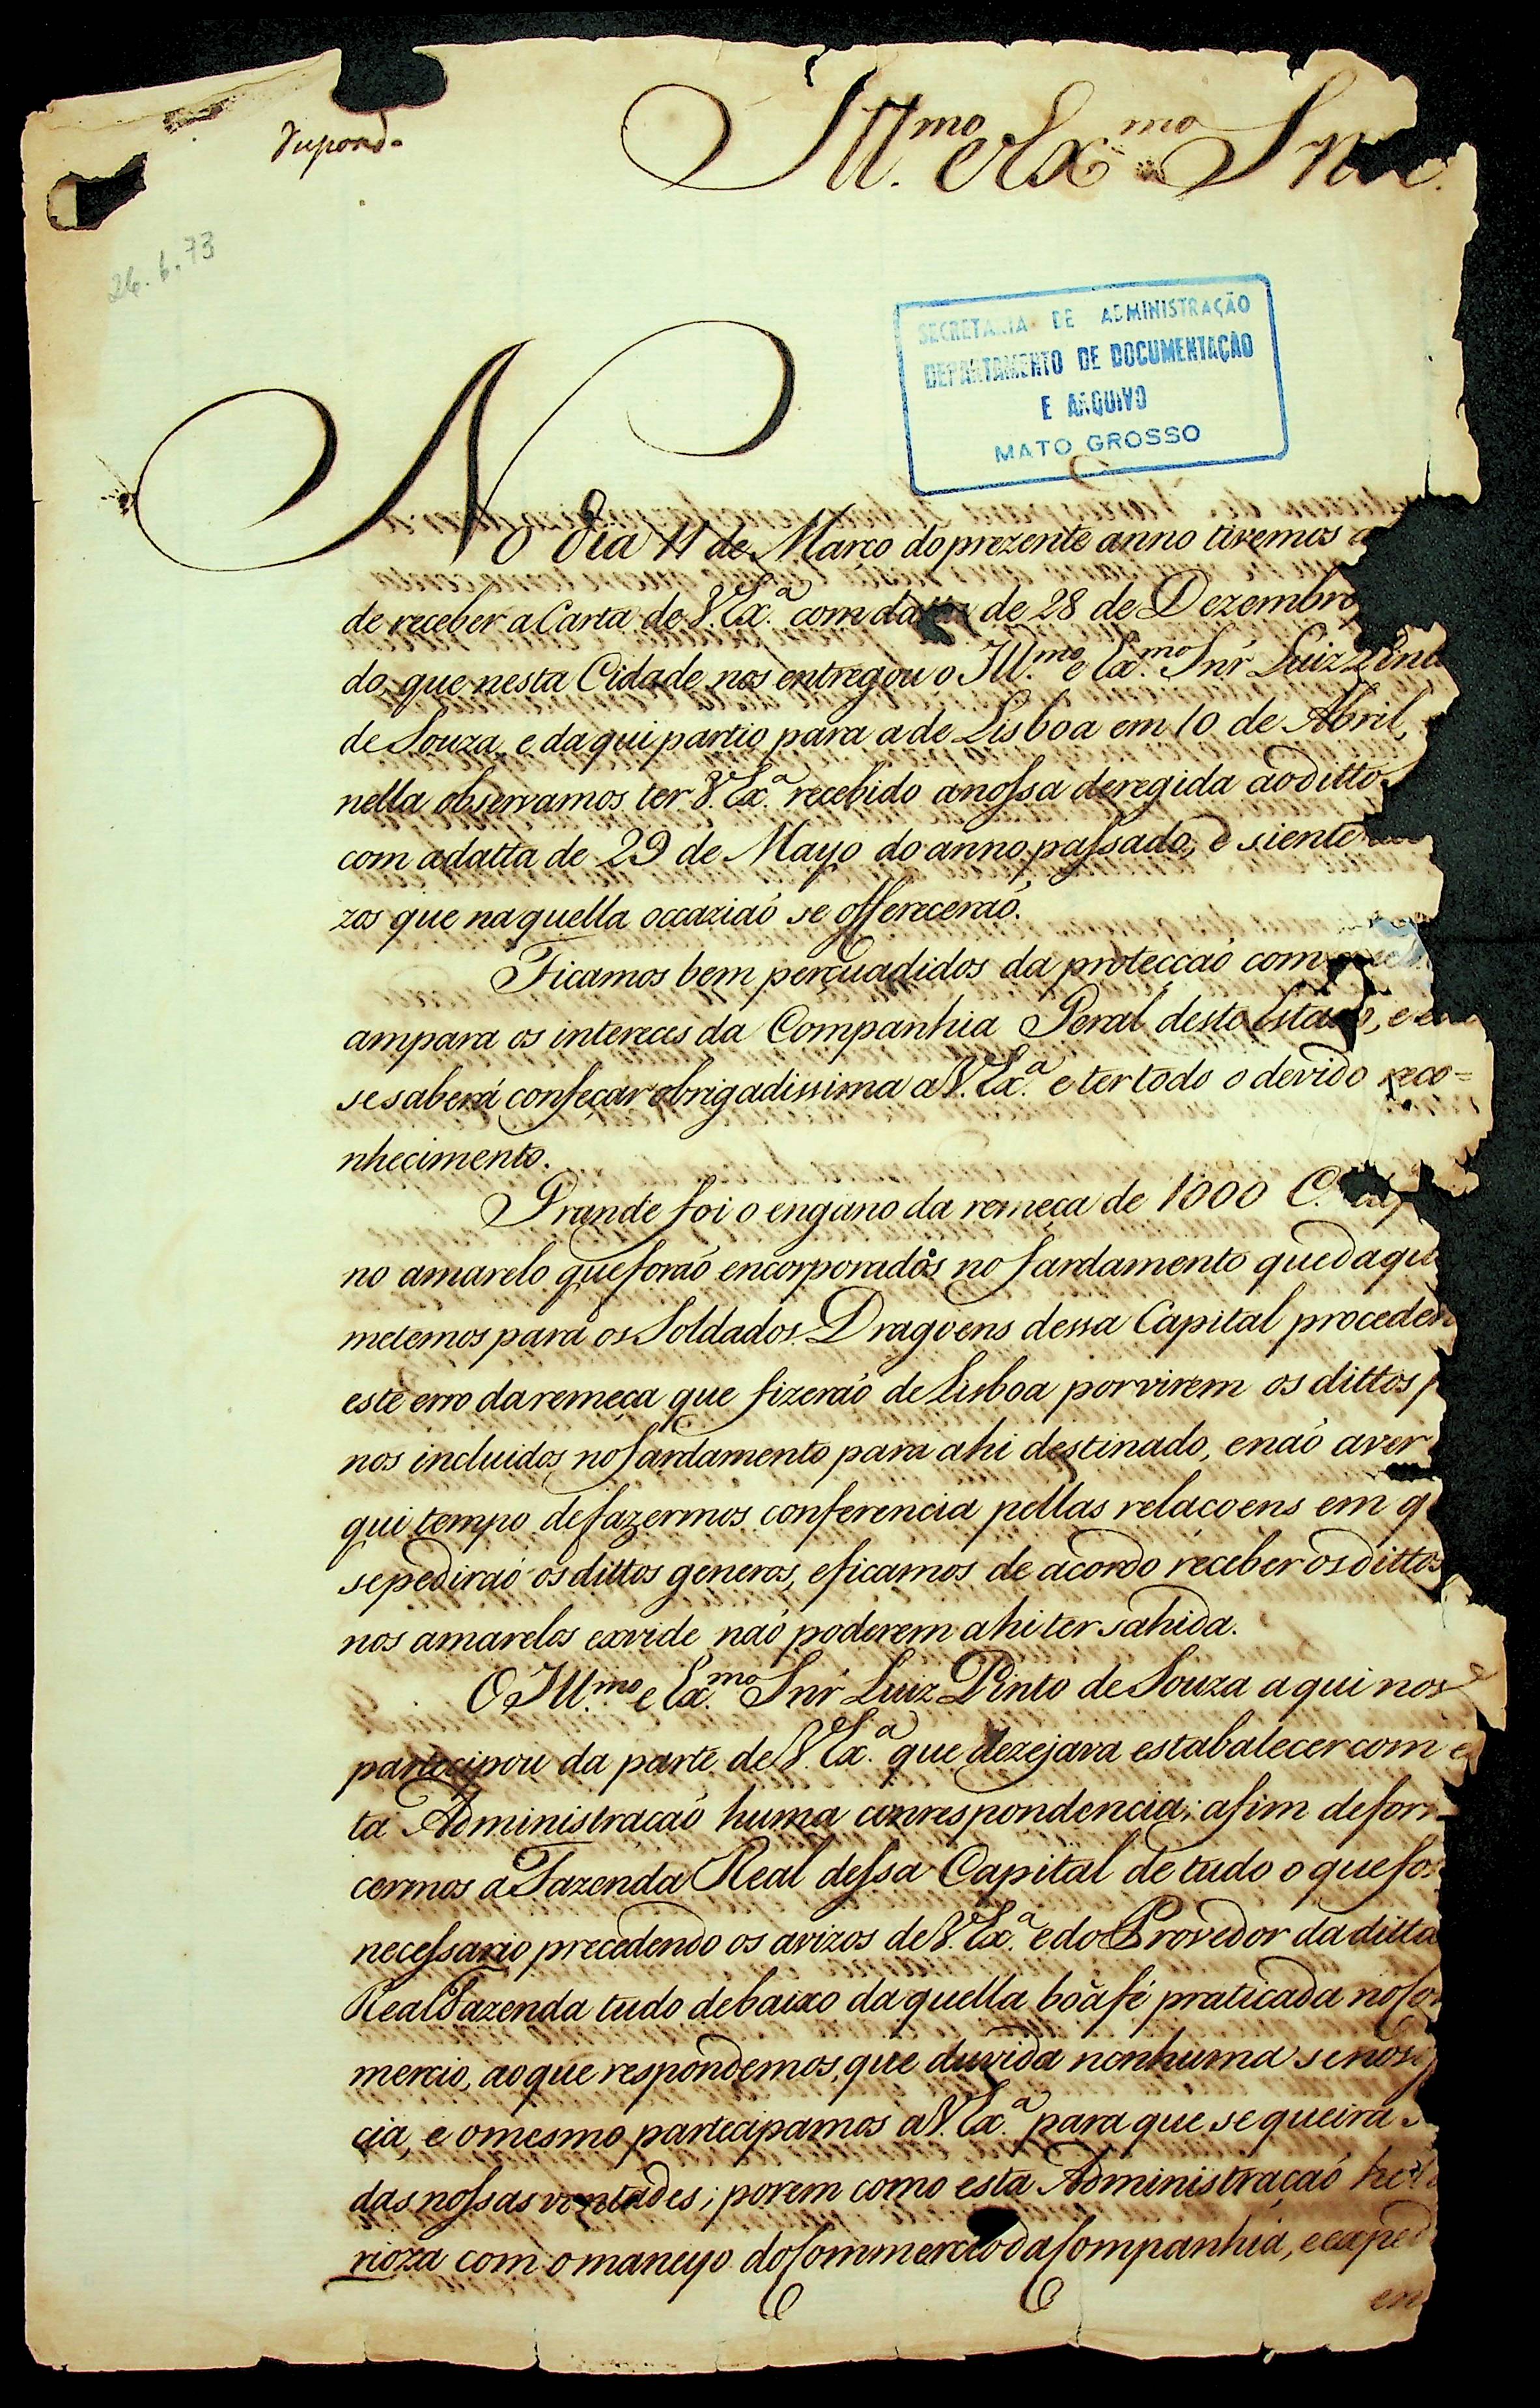 Ill.mo e Ex.mo Snr.
26.6.73
SECRETARIA DE ADMINISTRAÇÃO
DEPARTAMENTO DE DOCUMENTAÇÃO
E ARQUIVO
MATO GROSSO
No dia 11 de Março do prezente anno tivemos a
de receber a Carta de V. Ex.ª com data de 28 de Dezembro
do, que nesta Cidade nos entregou o Ill.mo e Ex.mo Snr Luiz Pinto
de Souza, e daqui partio para a de Lisboa em 10 de Abril,
nella observamos ter V. Ex.ª recebido a nossa deregida ao ditto
com a datta de 29 de Mayo do anno passado, e siente
zos que naquella occaziaõ se offereceraõ.
Ficamos bem perçuadidos da protecçaõ com que
ampara os intereces da Companhia Geral deste Estado, e
se saberá confeçar obrigadissima a V. Ex.ª e ter todo o devido reco=
nhecimento.
Grande foi o engano da remeça de 1000 C.
no amarelo que foraõ encorporados no fardamento que daqui
metemos para os Soldados Dragoens dessa Capital proceden
este erro da remeça que fizeraõ de Lisboa por virem os dittos
nos incluidos no fardamento para ahi destinado, e naõ aver
qui tempo de fazermos conferencia pellas relacoens em q
se pediraõ os dittos generos, e ficamos de acordo receber os dittos
nos amarelos exvide naõ poderem ahi ter sahida.
O Ill.mo e Ex.mo Snr Luiz Pinto de Souza aqui nos
partecipou da parte de V. Ex.ª que dezejava estabalecer com es
ta Administracaõ huma conrespondencia; afim de forn
cermos a Fazenda Real dessa Capital de tudo o que for
necessario precedendo os avizos de V. Ex.ª e do Provedor da ditta
Real Fazenda tudo debaixo daquella boa fé praticada no Co
mercio, ao que respondemos, que duvida nenhuma se nos
cia, e o mesmo partecipamos a V. Ex.ª para que se queira
das nossas vontades; porem como esta Administraçaõ he
rioza com o maneyo do Commercio da Companhia, e exped
en